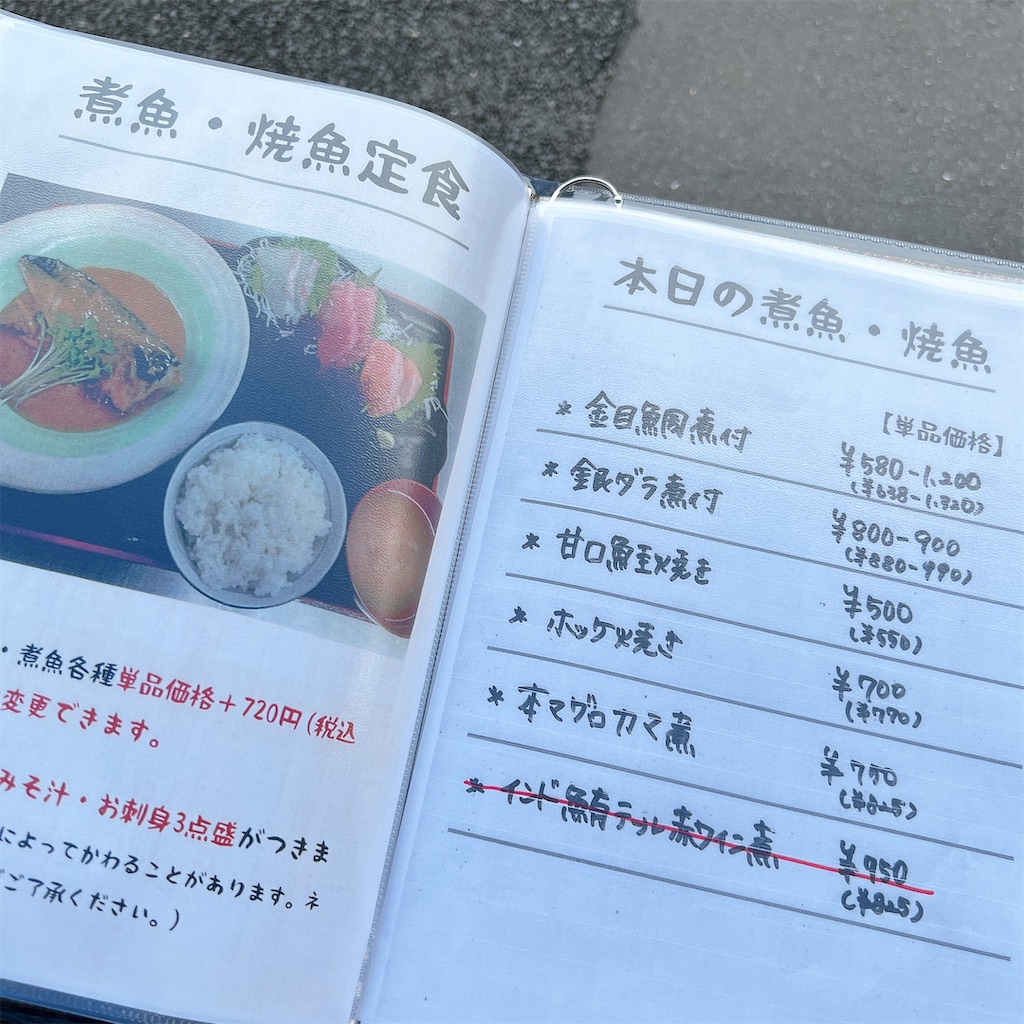 煮魚・焼魚定食
・煮魚各種単品価格+720円(税込
変更できます。
みそ汁・お刺身3点盛がつきま
によってかわることがあります。ネ
ご了承ください。)
本日の煮魚・焼魚
【単品価格】
* 金目鯛煮付 ¥580-1,200
(¥638-1,320)
* 銀ダラ煮付 ¥800-900
(¥880-990)
* 甘口鮭焼き ¥500
(¥550)
* ホッケ焼き ¥700
(¥770)
* 本マグロカマ煮 ¥750
(¥825)
* インド鮪テール赤ワイン煮 ¥950
(¥825)